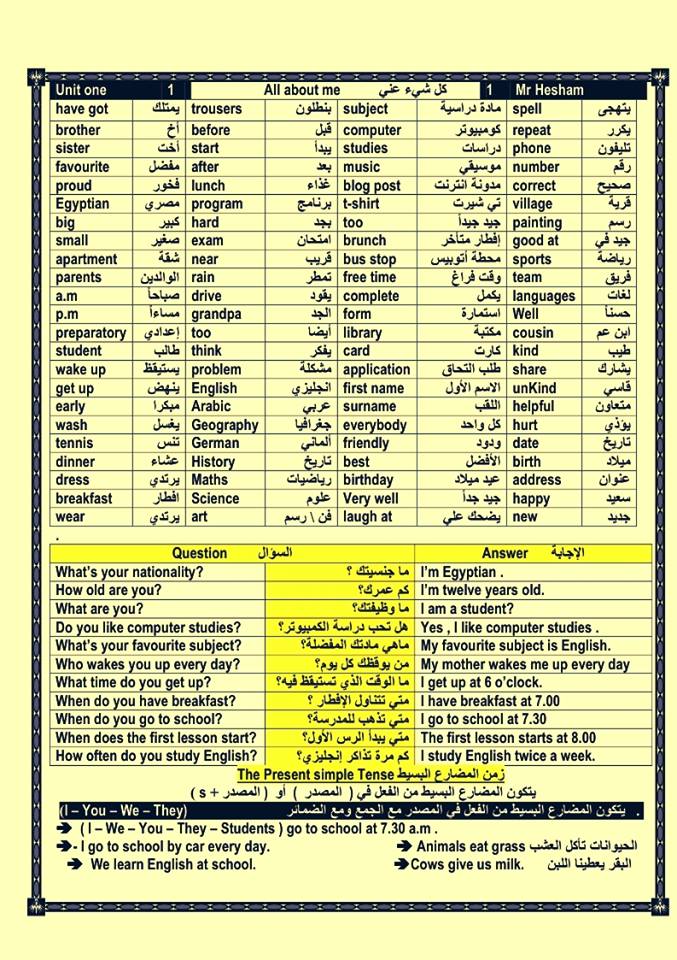 Unit one 1 All about me كل شيء عني 1 Mr Hesham
have got يمتلك trousers بنطلون subject مادة دراسية spell يتهجى
brother أخ before قبل computer كومبيوتر repeat يكرر
sister أخت start يبدأ studies دراسات phone تليفون
favourite مفضل after بعد music موسيقي number رقم
proud فخور lunch غذاء blog post مدونة انترنت correct صحيح
Egyptian مصري program برنامج t-shirt تي شيرت village قرية
big كبير hard بجد too جيد جيداً painting رسم
small صغير exam امتحان brunch إفطار متأخر good at جيد في
apartment شقة near قريب bus stop محطة أتوبيس sports رياضة
parents الوالدين rain تمطر free time وقت فراغ team فريق
a.m صباحاً drive يقود complete يكمل languages لغات
p.m مساءاً grandpa الجد form استمارة Well حسناً
preparatory إعدادي too أيضا library مكتبة cousin ابن عم
student طالب think يفكر card كارت kind طيب
wake up يستيقظ problem مشكلة application طلب التحاق share يشارك
get up ينهض English انجليزي first name الاسم الأول unKind قاسي
early مبكرا Arabic عربي surname اللقب helpful متعاون
wash يغسل Geography جغرافيا everybody كل واحد hurt يؤذي
tennis تنس German ألماني friendly ودود date تاريخ
dinner عشاء History تاريخ best الأفضل birth ميلاد
dress يرتدي Maths رياضيات birthday عيد ميلاد address عنوان
breakfast افطار Science علوم Very well جيد جداً happy سعيد
wear يرتدي art فن \ رسم laugh at يضحك علي new جديد
.
Question السؤال Answer الإجابة
What's your nationality? ما جنسيتك ؟ I'm Egyptian .
How old are you? كم عمرك؟ I'm twelve years old.
What are you? ما وظيفتك؟ I am a student?
Do you like computer studies? هل تحب دراسة الكمبيوتر؟ Yes , I like computer studies .
What's your favourite subject? ماهي مادتك المفضلة؟ My favourite subject is English.
Who wakes you up every day? من يوقظك كل يوم؟ My mother wakes me up every day
What time do you get up? ما الوقت الذي تستيقظ فيه؟ I get up at 6 o'clock.
When do you have breakfast? متي تتناول الإفطار ؟ I have breakfast at 7.00
When do you go to school? متي تذهب للمدرسة؟ I go to school at 7.30
When does the first lesson start? متي يبدأ الرس الأول؟ The first lesson starts at 8.00
How often do you study English? كم مرة تذاكر إنجليزي؟ I study English twice a week.
The Present simple Tense زمن المضارع البسيط
يتكون المضارع البسيط من الفعل في ( المصدر ) أو ( المصدر + s )
(I – You – We – They) يتكون المضارع البسيط من الفعل في المصدر مع الجمع ومع الضمائر .
➔ ( I – We – You – They – Students ) go to school at 7.30 a.m .
➔- I go to school by car every day. ➔ Animals eat grass الحيوانات تأكل العشب
➔ We learn English at school. ➔Cows give us milk. البقر يعطينا اللبن